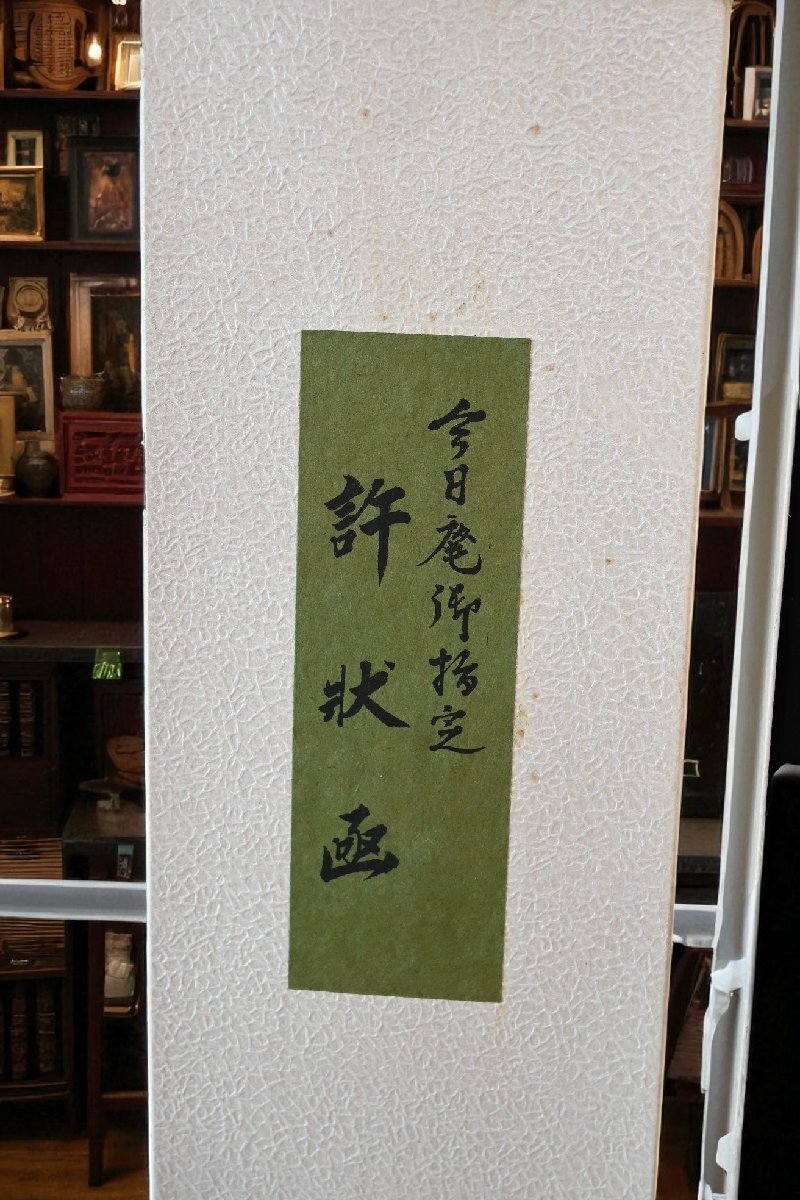 今日庵御指定
許状函